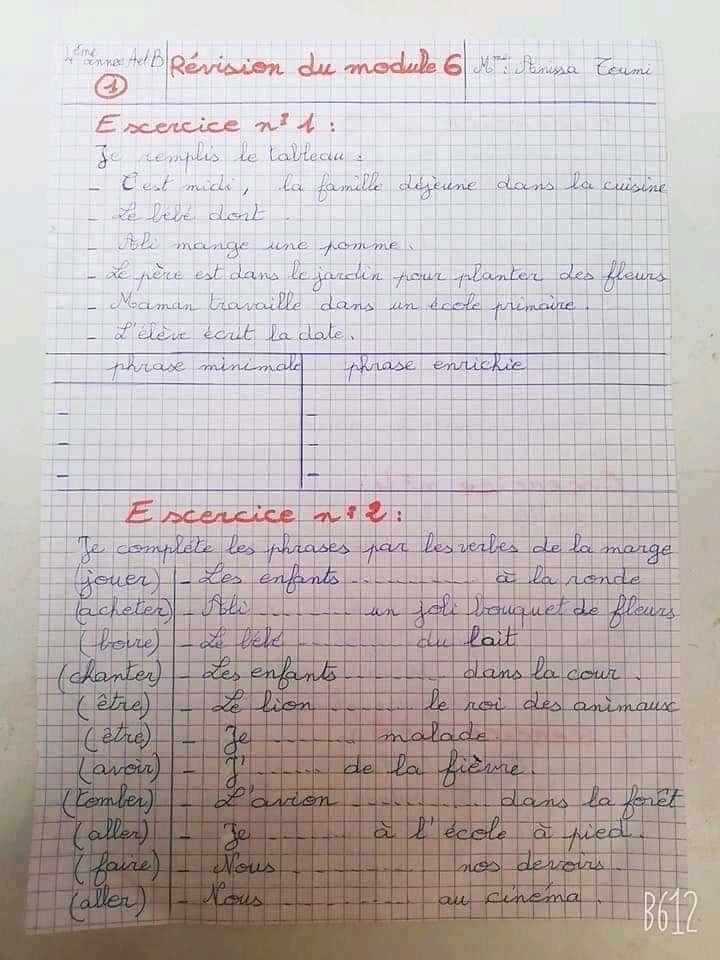 4ème année A et B
Révision du module 6
Mme: Anissa Toumi
1
Excercice n° 1 :
Je remplis le tableau :
- C'est midi, la famille déjeune dans la cuisine
- Le bébé dort .
- Ali mange une pomme.
- Le père est dans le jardin pour planter des fleurs
- Maman travaille dans un école primaire.
- L'élève écrit la date.
phrase minimale | phrase enrichie
- -
- -
- -
Excercice n° 2 :
Je compléte les phrases par les verbes de la marge
(jouer) - Les enfants ............ à la ronde
(acheter) - Ali ............ un joli bouquet de fleurs
(boire) - Le bébé ............ du lait
(chanter) - Les enfants ............ dans la cour .
(être) - Le lion ............ le roi des animaux
(être) - Je ............ malade
(avoir) - J' ............ de la fièvre.
(tomber) - L'avion ............ dans la forêt
(aller) - Je ............ à l'école à pied.
(faire) - Nous ............ nos devoirs
(aller) - Nous ............ au cinéma .
B612